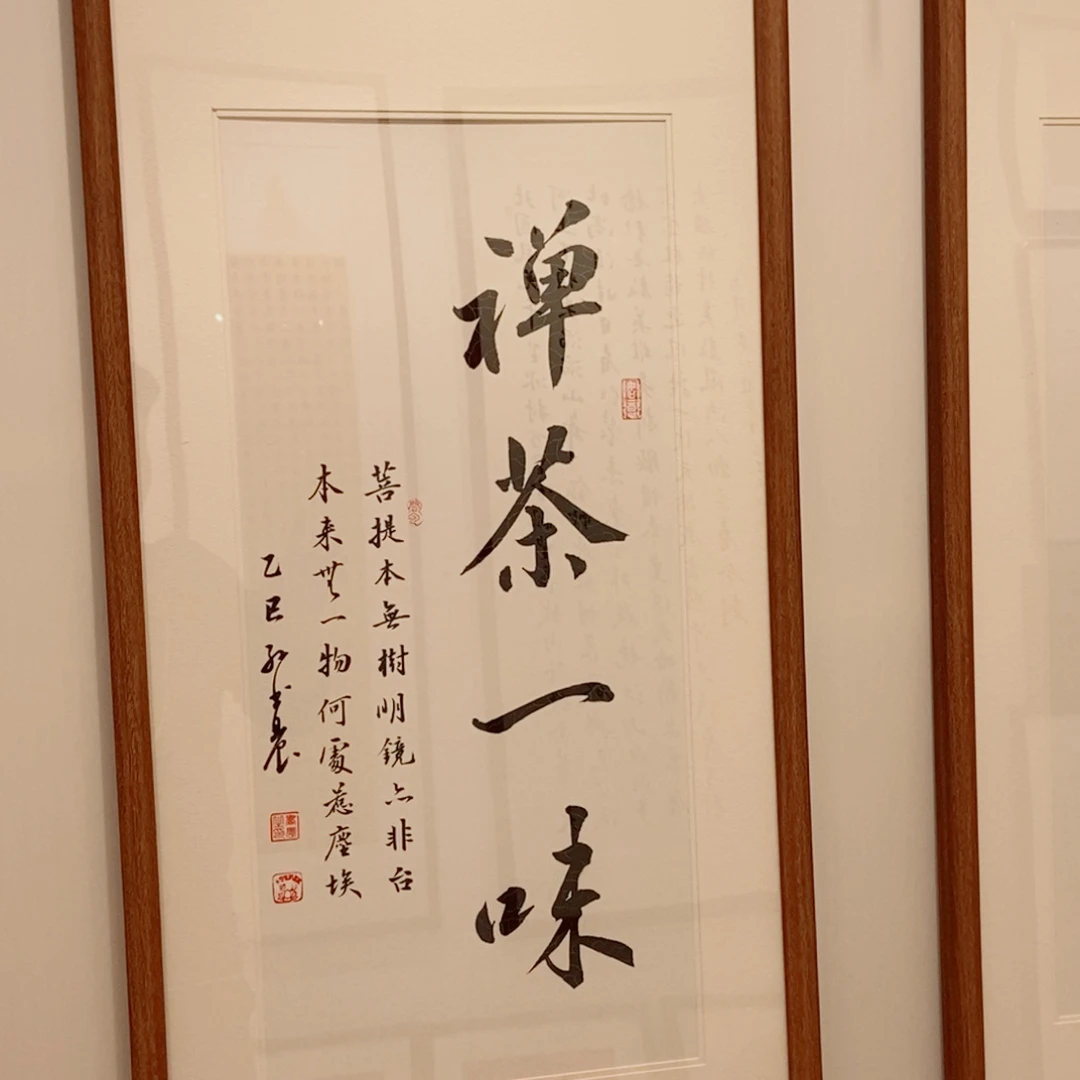 禅茶一味
菩提本無樹明鏡亦非台
本来無一物何處惹塵埃
乙巳